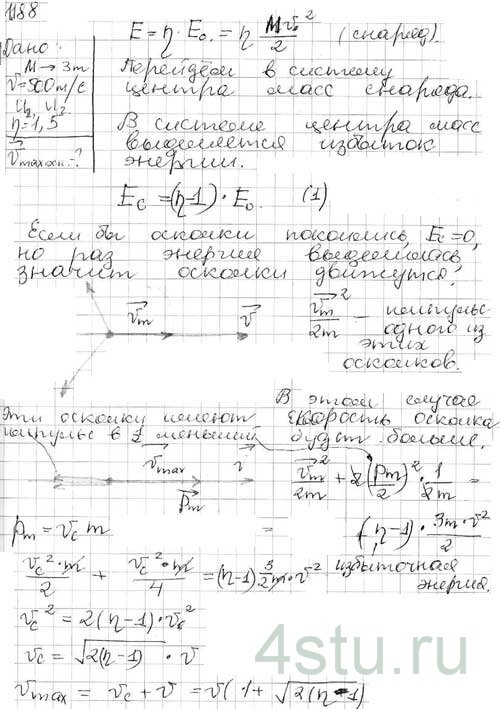 1188
E = η · E₀ = η Mv₀²/2 (снаряд).
Дано:
M → 3m
v = 500 м/с
η = 1,5
v max оск. - ?
Перейдём в систему
центра масс снаряда.
В системе центра масс
выделяется избыток
энергии.
E_c = (η-1) · E₀ (1)
Если бы осколки покоились, E_c = 0,
но раз энергия выделилась,
значит осколки движутся.
v_m v
v_m²/2m - импульс
одного из
этих
осколков.
Эти осколки имеют
импульс в 1 меньший
В этом случае
скорость осколка
будет больше.
v_max v
p_m
v_m²/2m + 2(p_m/2)² · 1/2m =
p_m = v_c m
= (η-1) · 3m·v²/2
v_c²·m/2 + v_c²·m/4 = (η-1) 3/2 m·v²
избыточная
энергия.
v_c² = 2(η-1)·v_c²
v_c = √2(η-1) · v
v_max = v_c + v = v(1 + √2(η-1)
4stu.ru